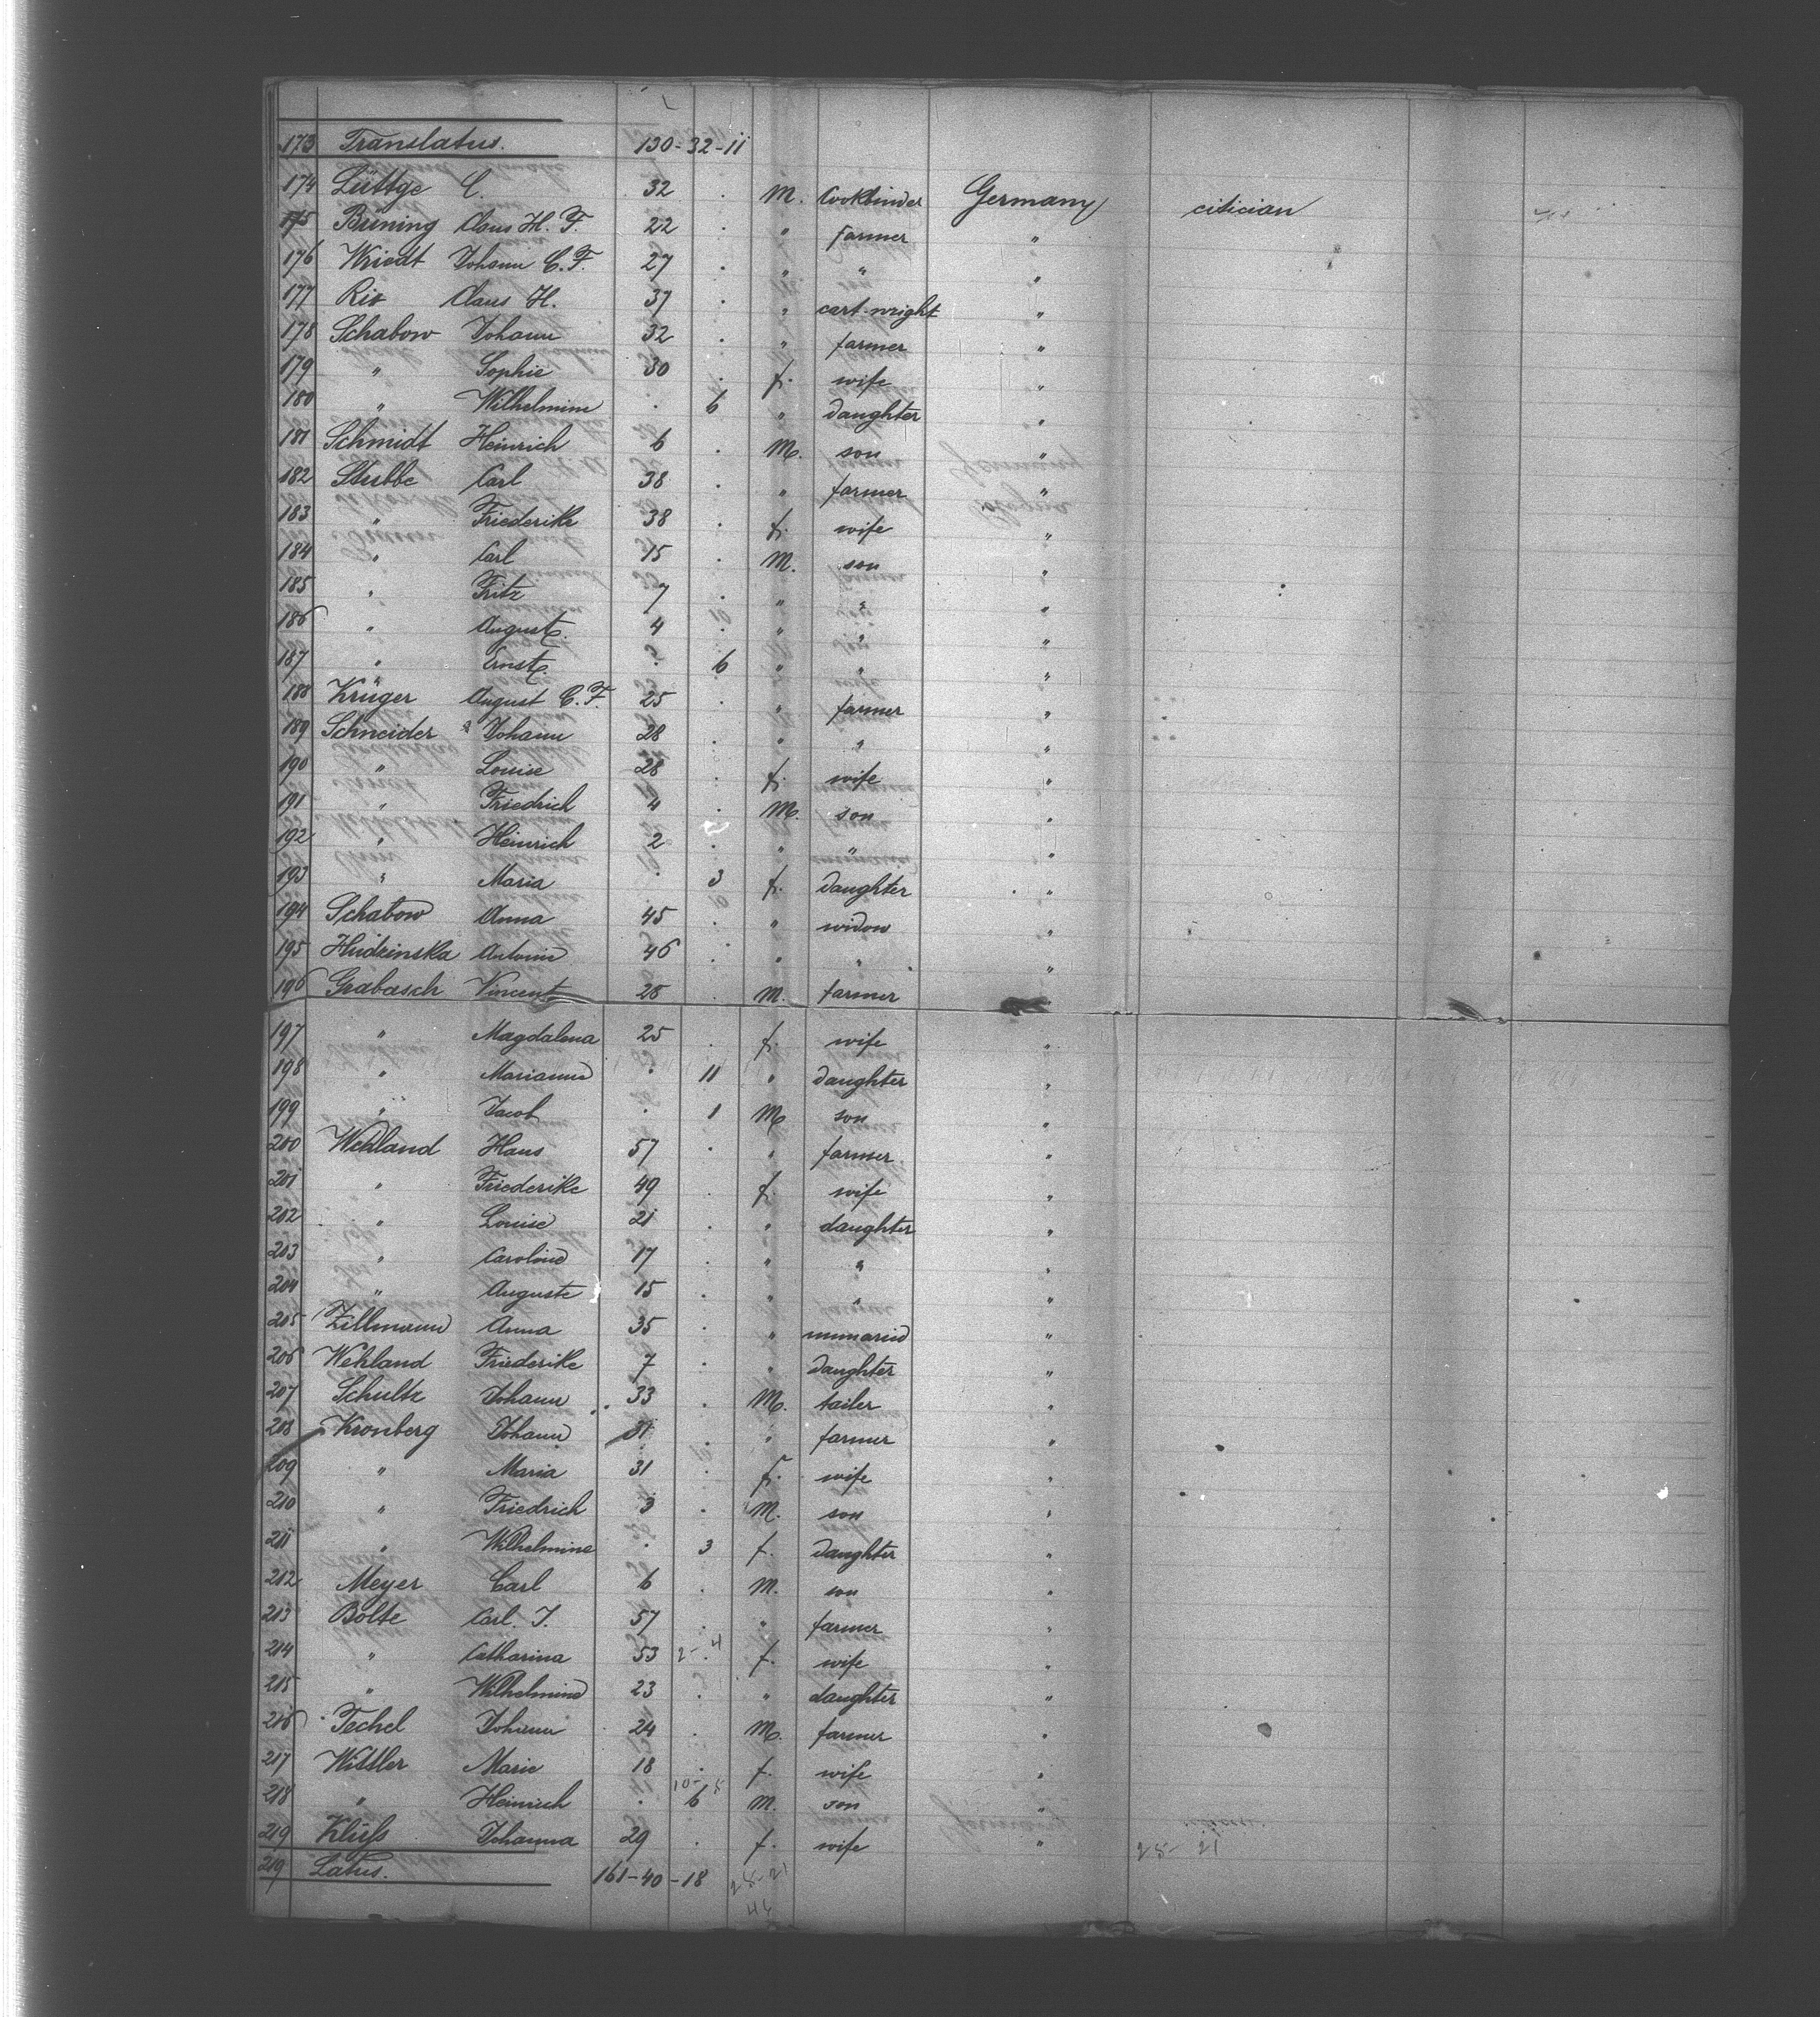 173 Translatus. 130-32-11
174 Lüttge C. 32 . M. bookbinder Germany citician
175 Brüning Claus H. F. 22 . " farmer "
176 Wriedt Johann C. F. 27 . " " "
177 Claus H. 37 . " cart-wright "
178 Schabow Johann 32 . " farmer "
179 " Sophie 30 . f. wife "
180 " Wilhelmine . 6 " daughter "
181 Schmidt Heinrich 6 . M. son "
182 Stubbe Carl 38 . " farmer "
183 " Friederike 38 . f. wife "
184 " Carl 15 . M. son "
185 " Fritz 7 . " " "
186 " August. 4 . " " "
187 " Ernst. . 6 " " "
188 Krüger August C. F. 25 . " farmer "
189 Schneider Johann 28 . " " "
190 " Louise 28 . f. wife "
191 " Friedrich 4 . M. son "
192 " Heinrich 2 . " " "
193 " Maria . 3 f. daughter "
194 Schabow Anna 45 . " widow "
195 Hudzinska Antonie 46 . " " "
196 Grabasch Vincent 28 . M. farmer "
197 " Magdalena 25 . f. wife "
198 " Marianne . 11 " daughter "
199 " Jacob . 1 M. son "
200 Wehland Hans 57 . " farmer "
201 " Friederike 49 . f. wife "
202 " Louise 21 . " daughter "
203 " Caroline 17 " " "
204 " Auguste 15 . " " "
205 Zillmann Anna 35 . " "
206 Wehland Friederike 7 . " daughter "
207 Schultz Johann 33 . M. tailer "
208 Kronberg Johann 31 . " farmer "
209 " Maria 31 . f. wife "
210 " Friedrich 3 . M. son "
211 " Wilhelmine . 3 f. daughter "
212 Meyer Carl 6 . M. son "
213 Bolte Carl. J. 57 . " farmer "
214 " Catharina 53 2-4 f. wife "
215 " Wilhelmine 23 . " daughter "
216 Techel Johann 24 . M. farmer "
217 Wittler Marie 18 . f. wife "
218 " Heinrich . 6 M. son "
219 Klüfs Johanna 29 . f. wife "
25- 21
219 Latus. 161-40-18